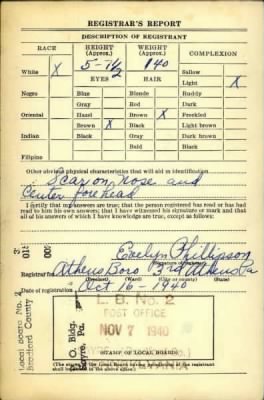 REGISTRAR'S REPORT
DESCRIPTION OF REGISTRANT
RACE
HEIGHT (Approx.)
WEIGHT (Approx.)
COMPLEXION
5-7½
140
White X
EYES
HAIR
Sallow
Light X
Negro
Blue
Blonde
Ruddy
Gray
Red
Dark
Oriental
Hazel
Brown X
Freckled
Brown X
Black
Light brown
Indian
Black
Gray
Dark brown
Bald
Black
Filipino
Other obvious physical characteristics that will aid in identification
Scar on nose and
Center forehead
I certify that my answers are true; that the person registered has read or has had
read to him his own answers; that I have witnessed his signature or mark and that
all of his answers of which I have knowledge are true, except as follows:
Evelyn Phillipson
Registrar for Athens Boro 3rd Athens Pa
(Precinct)
Date of registration Oct 16-1940
Local Board No. 2
Bradford County
P.O. Bldg.
L. B. No. 2
POST OFFICE
NOV 7 1940
STAMP OF LOCAL BOARD